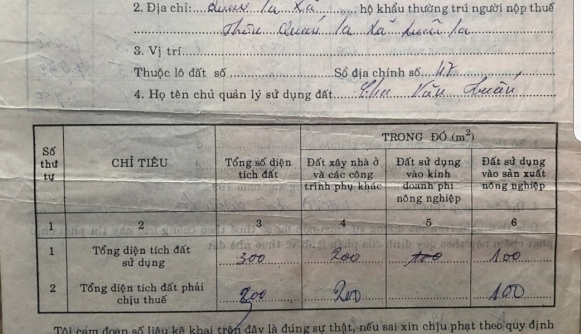 2. Địa chỉ:... Quán la Xã ... hộ khẩu thường trú người nộp thuế
Thôn Quán la Xã Xuân la
3. Vị trí
Thuộc lô đất số ... Sổ địa chính số... 47
4. Họ tên chủ quản lý sử dụng đất... Chu Văn
Số thứ tự
CHỈ TIÊU
Tổng số diện tích đất
TRONG ĐÓ (m²)
Đất xây nhà ở và các công trình phụ khác
Đất sử dụng vào kinh doanh phi nông nghiệp
Đất sử dụng vào sản xuất nông nghiệp
1 2 3 4 5 6
1 Tổng diện tích đất sử dụng 300 200 100 100
2 Tổng diện tích đất phải chịu thuế 200 200 100
Tôi cam đoan số liệu kê khai trên đây là đúng sự thật, nếu sai xin chịu phạt theo quy định